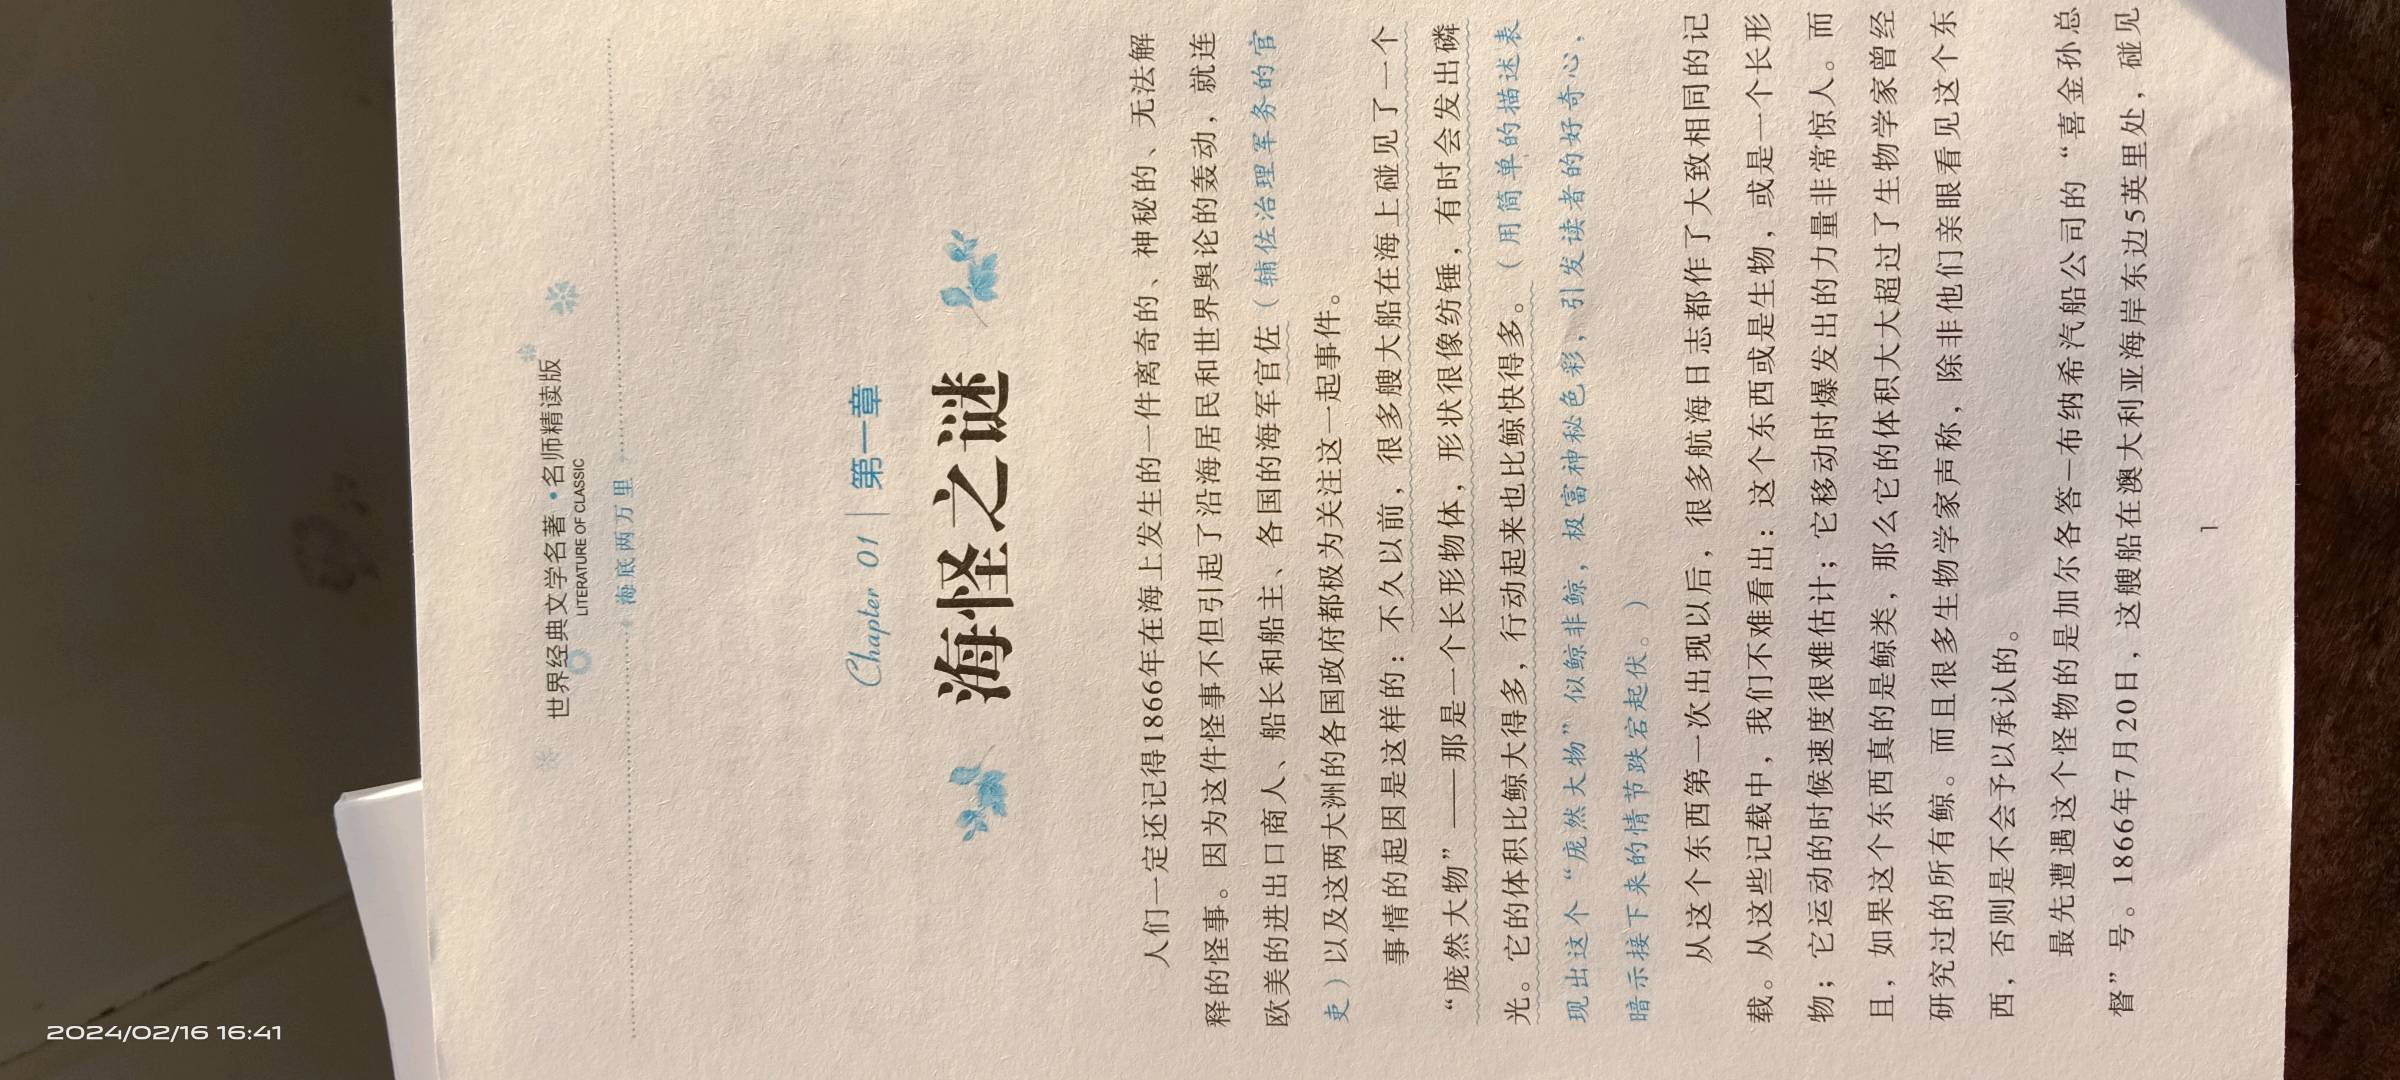 世界经典文学名著·名师精读版
LITERATURE OF CLASSIC
海底两万里
Chapter 01 | 第一章
海怪之谜
人们一定还记得1866年在海上发生的一件离奇的、神秘的、无法解
释的怪事。因为这件怪事不但引起了沿海居民和世界舆论的轰动，就连
欧美的进出口商人、船长和船主、各国的海军官佐（辅佐治理军务的官
吏）以及这两大洲的各国政府都极为关注这一起事件。
事情的起因是这样的：不久以前，很多艘大船在海上碰见了一个
“庞然大物”——那是一个长形物体，形状很像纺锤，有时会发出磷
光。它的体积比鲸大得多，行动起来也比鲸快得多。（用简单的描述表
现出这个“庞然大物”似鲸非鲸，极富神秘色彩，引发读者的好奇心，
暗示接下来的情节跌宕起伏。）
从这个东西第一次出现以后，很多航海日志都作了大致相同的记
载。从这些记载中，我们不难看出：这个东西或是生物，或是一个长形
物；它运动的时候速度很难估计；它移动时爆发出的力量非常惊人。而
且，如果这个东西真的是鲸类，那么它的体积大大超过了生物学家曾经
研究过的所有鲸。而且很多生物学家声称，除非他们亲眼看见这个东
西，否则是不会予以承认的。
最先遭遇这个怪物的是加尔各答—布纳希汽船公司的“喜金孙总
督”号。1866年7月20日，这艘船在澳大利亚海岸东边5英里处，碰见
1
2024/02/16 16:41